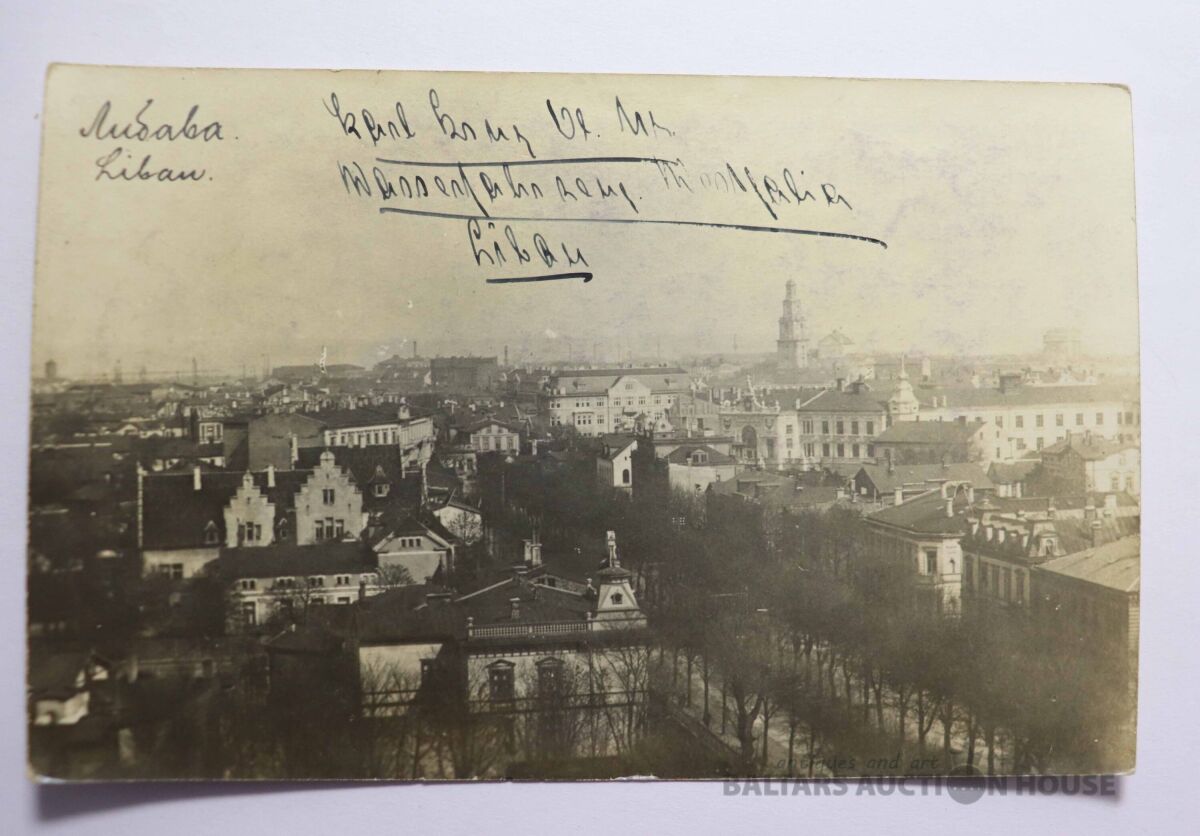 Либава.
Libau.
Karl
Wasserfahrzeug. Westfalia
Libau
antiques and art
BALTARS AUCTION HOUSE